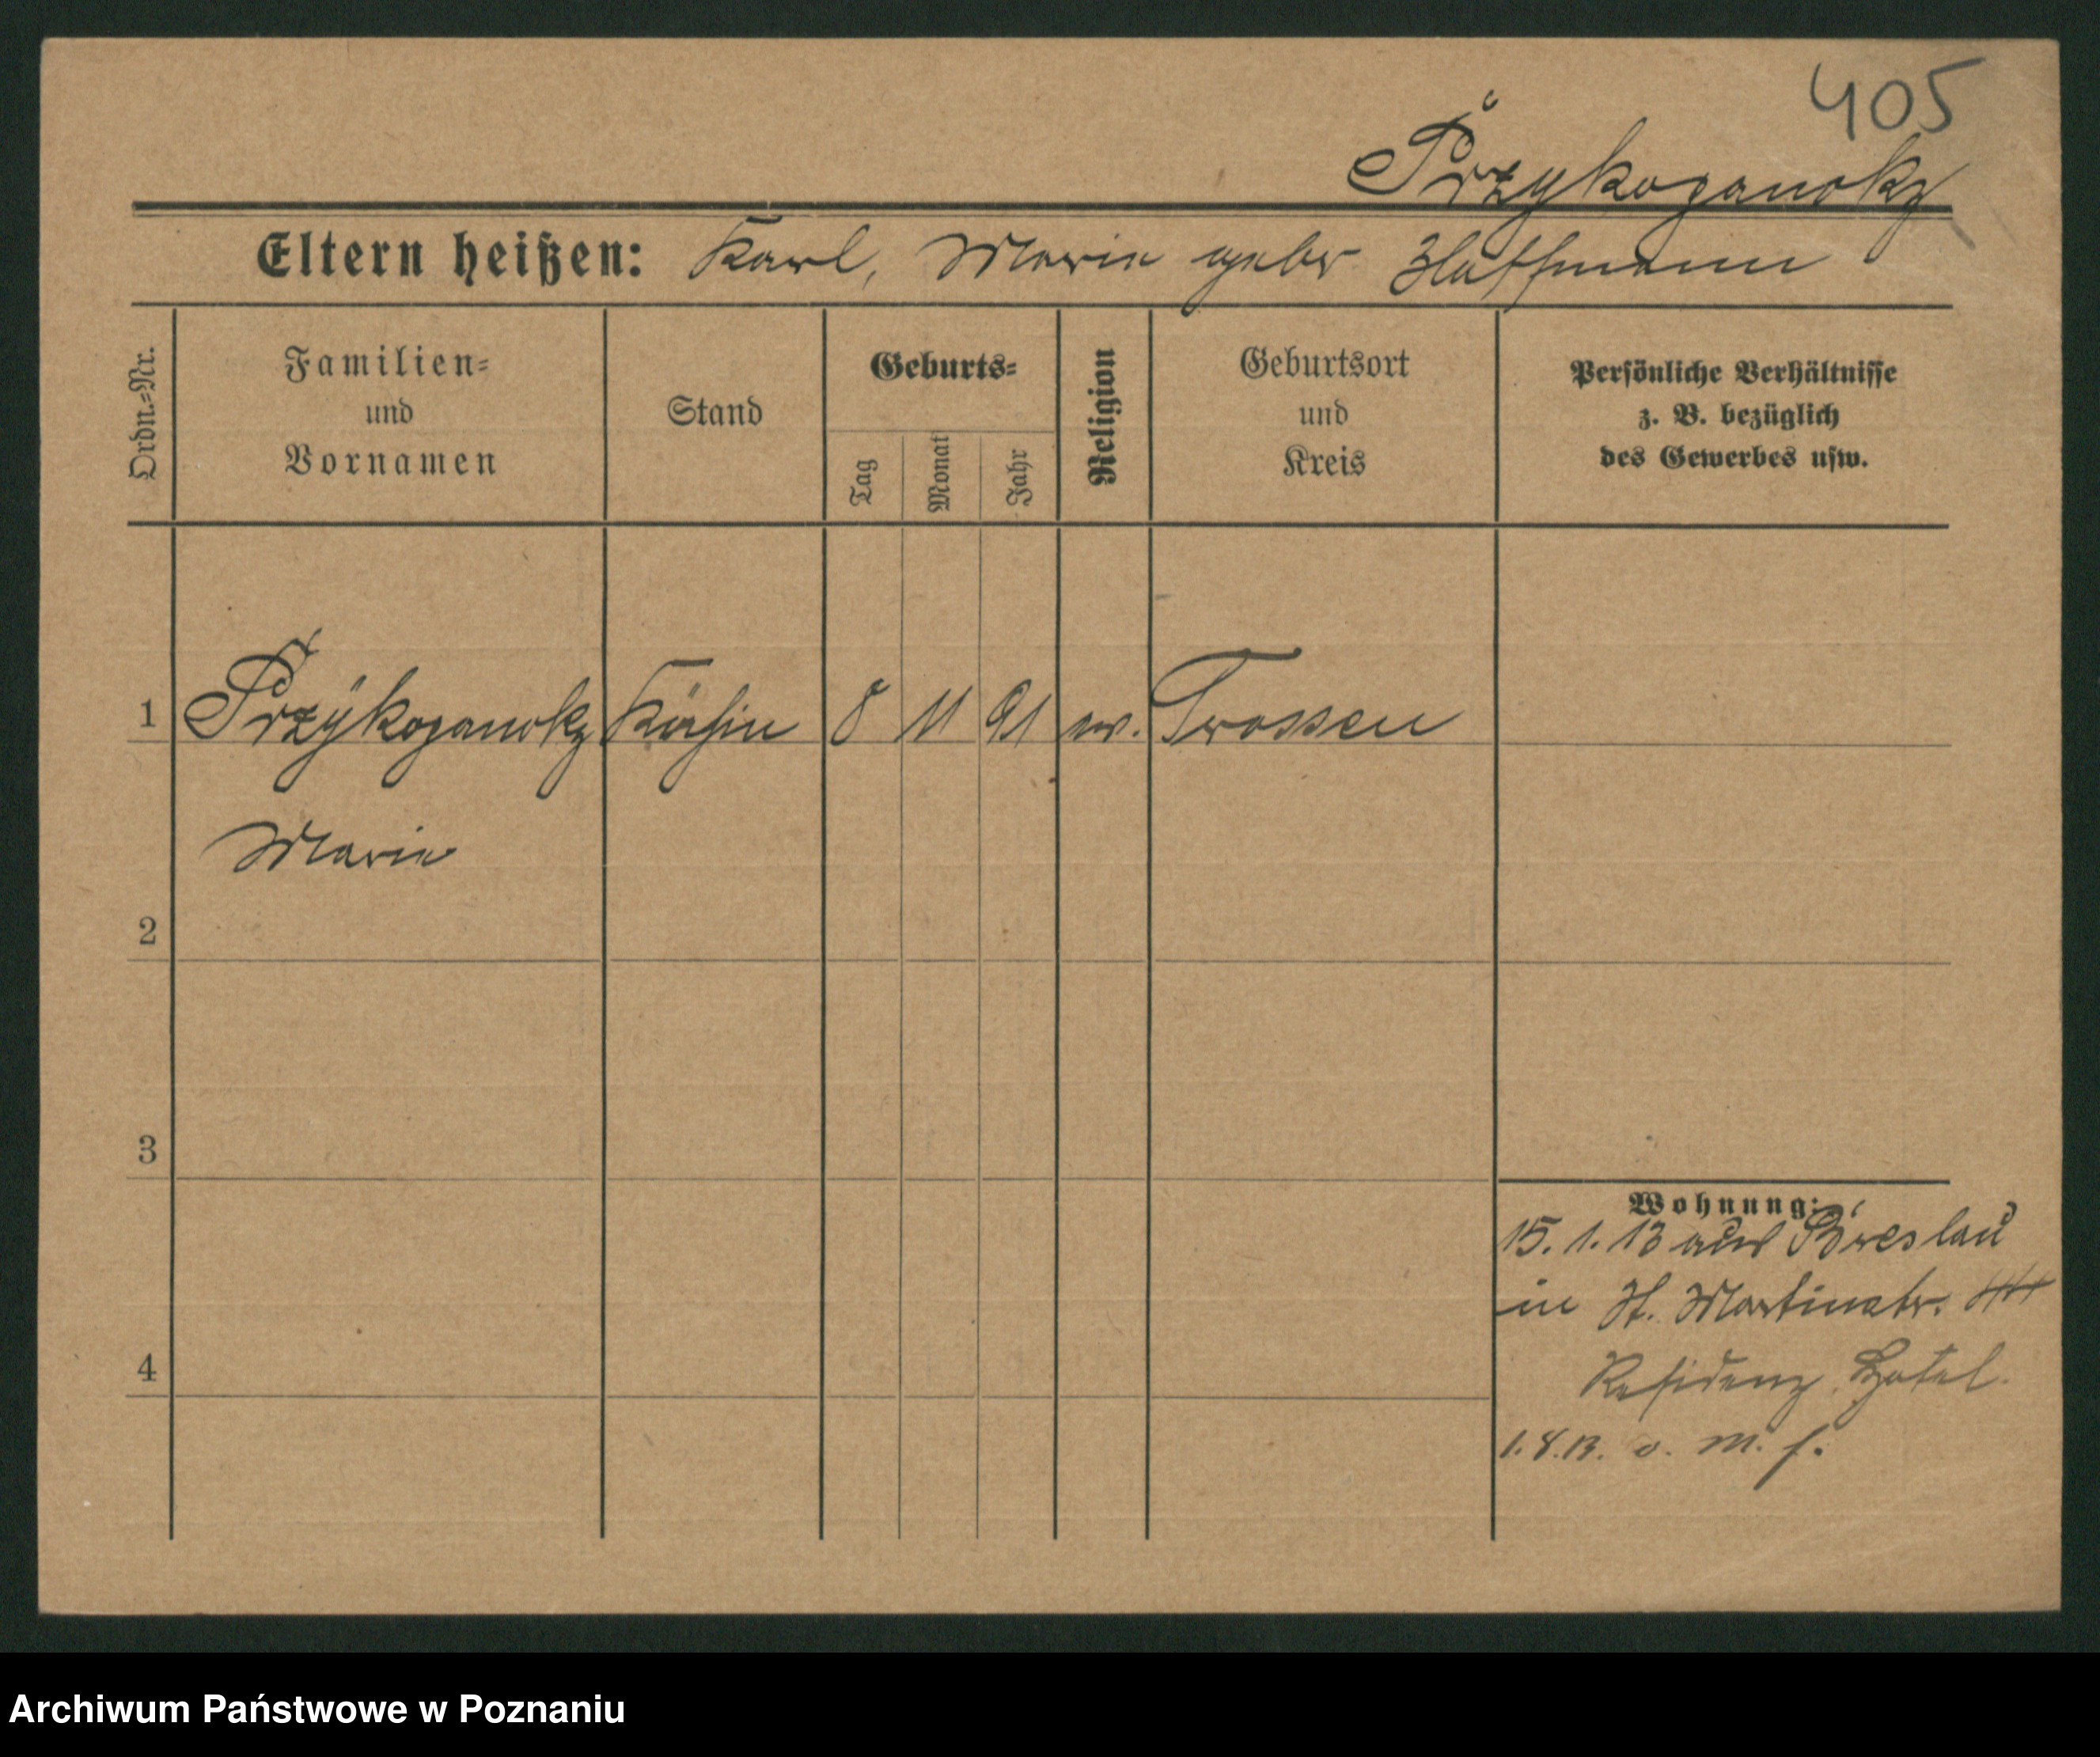 405
Przykoganoky
Eltern heißen: Karl, Marie geber Hoffmann
Ordn.-Nr.
Familien-
und
Vornamen
Stand
Geburts-
Tag
Monat
Jahr
Religion
Geburtsort
und
Kreis
Persönliche Verhältnisse
z. B. bezüglich
des Gewerbes usw.
1 Przÿkoganoky Köchin 8 11 91 ev. Trossen
Marie
2
3
4
Wohnung:
15. 1. 13 aus Breslau
in St. Martinstr.
Residenz Hotel.
1. 8. 13. o. M. f.
Archiwum Państwowe w Poznaniu